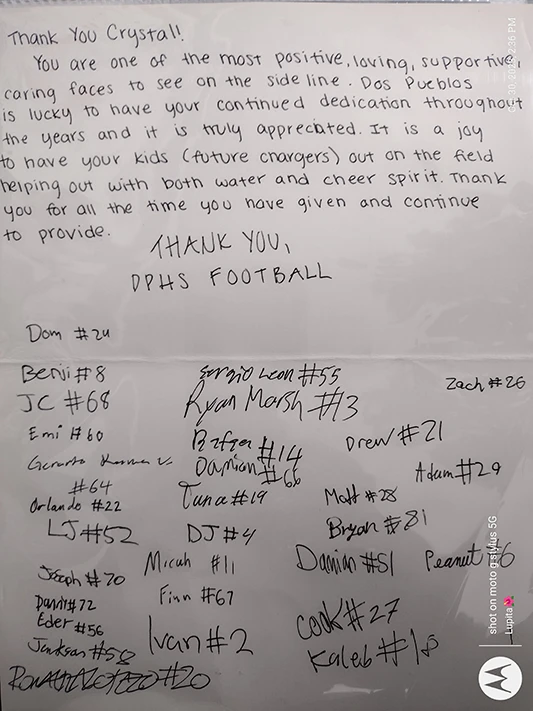 Thank You Crystal!
You are one of the most positive, loving, supportive,
caring faces to see on the side line. Dos Pueblos
is lucky to have your continued dedication throughout
the years and it is truly appreciated. It is a joy
to have your kids (future chargers) out on the field
helping out with both water and cheer spirit. Thank
you for all the time you have given and continue
to provide.
THANK YOU,
DPHS FOOTBALL
Dom #24
Benji #8
Sergio Leon #55
Zach #26
JC #68
Ryan Marsh #13
Emi #60
#14
Drew #21
Damian #66
Adam #29
#64
Tuna #19
Matt #28
Orlando #22
LJ #52
DJ #4
Bryan #81
Micah #11
Damian #51
Peanut #6
Joseph #70
Finn #67
#72
Eder #56
Cook #27
Ivan #2
Jackson #58
Kaleb #18
#20
shot on moto g stylus 5G
Lupita